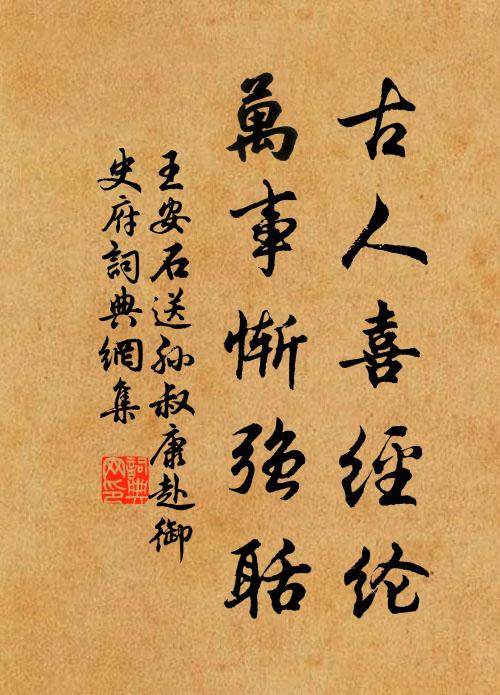 古人喜經纶
萬事慚强聒
王安石送孙叔康赴御
史府詞典網集
詞典网印